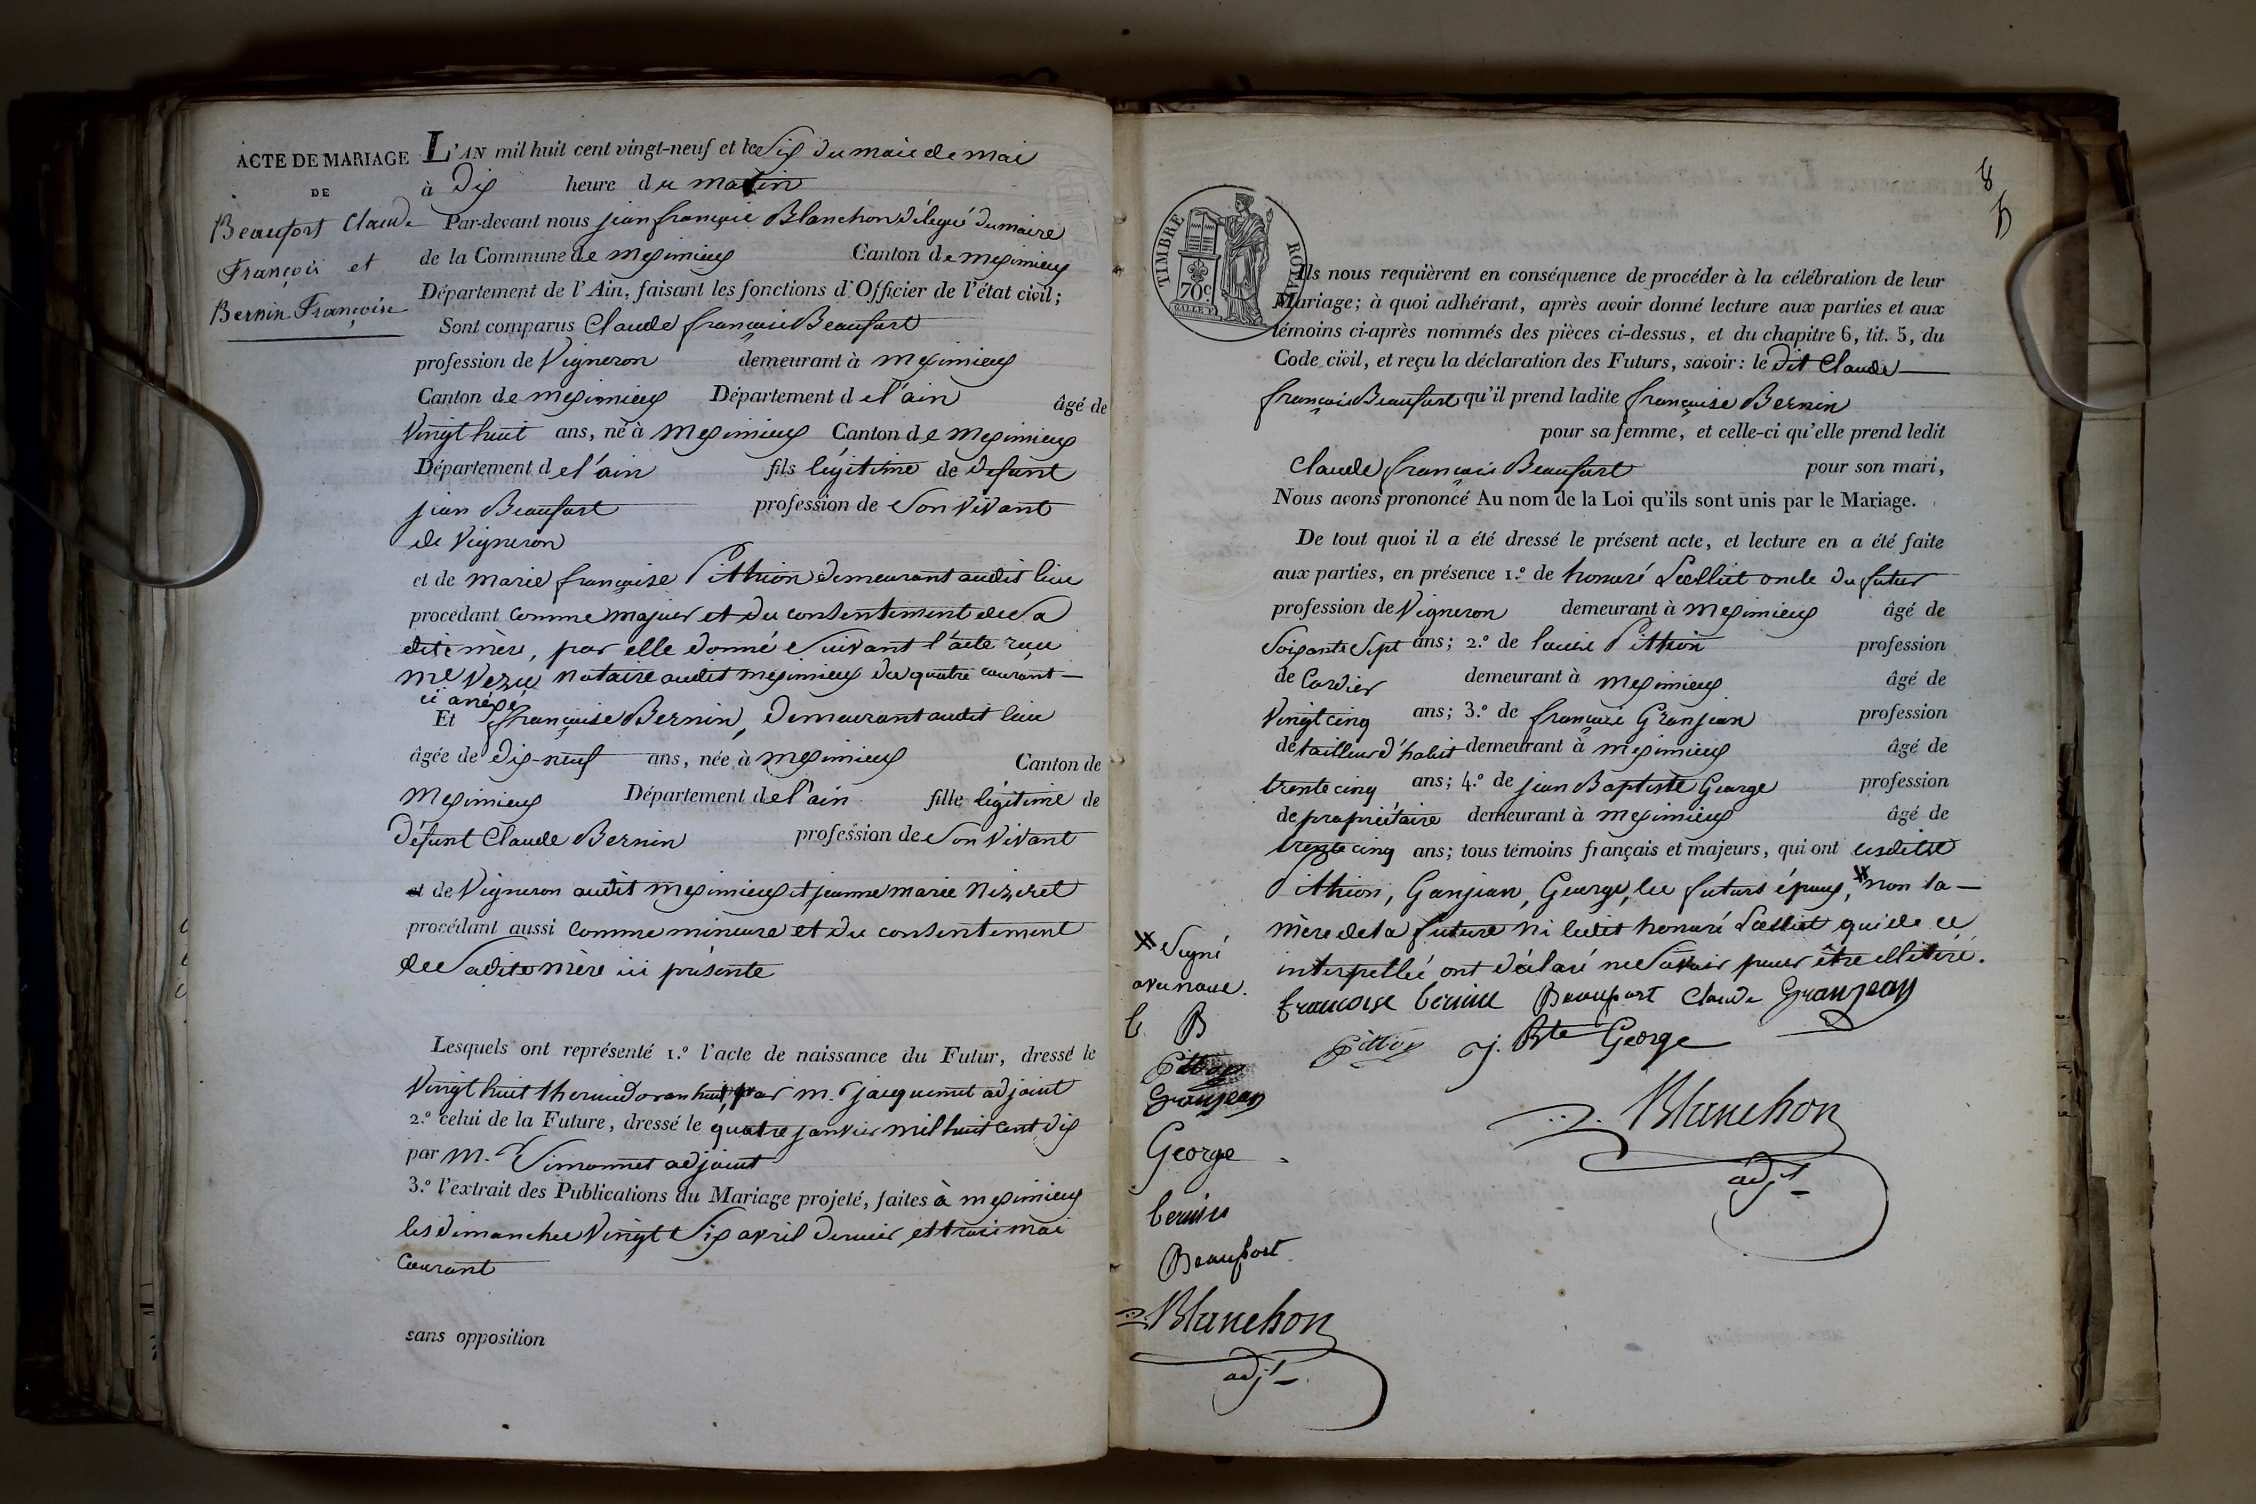 ACTE DE MARIAGE
DE
Beaufort Claude
François et
Bernin Françoise
L'AN mil huit cent vingt-neuf et le Six du mois de mai
à Dix heure du matin
Par-devant nous jean françois Blanchon délégué du maire
de la Commune de meximieux Canton de meximieux
Département de l'Ain, faisant les fonctions d'Officier de l'état civil;
Sont comparus Claude françois Beaufort
profession de Vigneron demeurant à meximieux
Canton de meximieux Département de l'ain âgé de
Vingt huit ans, né à meximieux Canton de meximieux
Département de l'ain fils légitime de defunt
jean Beaufort profession de Son Vivant
de Vigneron
et de marie françoise Pithion demeurant audit lieu
procédant comme majeur et du consentement de Sa
dite mère, par elle donné Suivant l'acte reçu
me Vezu notaire audit meximieux du quatre courant
ci anéxé
Et françoise Bernin, demeurant audit lieu
âgée de dix-neuf ans, née à meximieux Canton de
meximieux Département de l'ain fille légitime de
Défunt Claude Bernin profession de Son Vivant
et de Vigneron audit meximieux et jeanne marie Nizeret
procédant aussi comme mineure et du consentement
de Sadite mère ici présente
Lesquels ont représenté 1.º l'acte de naissance du Futur, dressé le
Vingt huit thermidor an huit, par m.r jacquemet adjoint
2.º celui de la Future, dressé le quatre janvier mil huit cent dix
par m.r Simonnet adjoint
3.º l'extrait des Publications du Mariage projeté, faites à meximieux
les dimanches Vingt Six avril dernier et trois mai
courant
sans opposition
8
TIMBRE ROYAL
70c
Ils nous requièrent en conséquence de procéder à la célébration de leur
Mariage; à quoi adhérant, après avoir donné lecture aux parties et aux
témoins ci-après nommés des pièces ci-dessus, et du chapitre 6, tit. 5, du
Code civil, et reçu la déclaration des Futurs, savoir: le dit Claude
françois Beaufort qu'il prend ladite françoise Bernin
pour sa femme, et celle-ci qu'elle prend ledit
Claude françois Beaufort pour son mari,
Nous avons prononcé Au nom de la Loi qu'ils sont unis par le Mariage.
De tout quoi il a été dressé le présent acte, et lecture en a été faite
aux parties, en présence 1.º de honoré oncle du futur
profession de Vigneron demeurant à meximieux âgé de
Soixante Sept ans; 2.º de louis Pithion profession
de Cordier demeurant à meximieux âgé de
Vingt cinq ans; 3.º de françois Granjean profession
de tailleur d'habit demeurant à meximieux âgé de
trente cinq ans; 4.º de jean Baptiste George profession
de propriétaire demeurant à meximieux âgé de
trente cinq ans; tous témoins français et majeurs, qui ont lesdits
Pithion, Ganjean, George, les futurs époux, # non la
mère de la future ni ledit honoré qui de ce
interpellé ont déclaré ne Savoir pour être illitéré.
# Signé
avec nous.
f. B
Pittion
Granjean
George
bernin
Beaufort
Blanchon
adjt
francoise bernin Beaufort Claude Granjean
Pittion J. Bte George
Blanchon
adjt